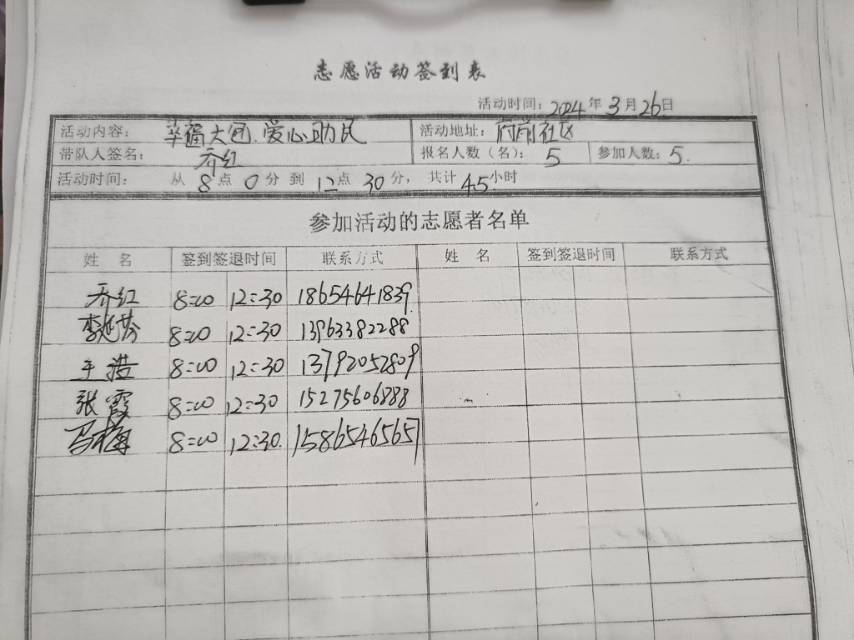 志愿活动签到表
活动时间：2024年3月26日
活动内容：幸福大团、爱心助民 活动地址：府前社区
带队人签名：乔红 报名人数（名）：5 参加人数：5.
活动时间：从8点0分到12点30分，共计4.5小时
参加活动的志愿者名单
姓名 签到签退时间 联系方式 姓名 签到签退时间 联系方式
乔红 8:00 12:30 18654641839
李延芬 8:00 12:30 13963382288
王浩 8:00 12:30 13792052809
张霞 8:00 12:30 15275606888
马梅 8:00 12:30. 15865465657